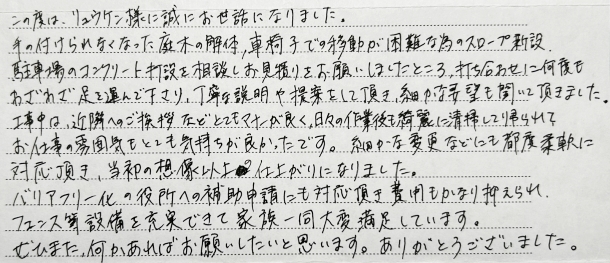 この度は、リュウケン様に誠にお世話になりました。
手の付けられなくなった庭木の解体、車椅子での移動が困難な為のスロープ新設、
駐車場のコンクリート打設を相談しお見積りをお願いしましたところ、打ち合わせに何度も
わざわざ足を運んで下さり、丁寧な説明や提案をして頂き、細かな要望も聞いて頂きました。
工事中は、近隣へのご挨拶などとてもマナーが良く、日々の作業後も綺麗に清掃して帰られて
お仕事の雰囲気もとても気持ちが良かったです。細かな変更などにも都度柔軟に
対応頂き、当初の想像以上の仕上がりになりました。
バリアフリー化の役所への補助申請にも対応頂き費用もかなり抑えられ、
フェンス等設備を充実できて家族一同大変満足しています。
ぜひまた、何かあればお願いしたいと思います。ありがとうございました。